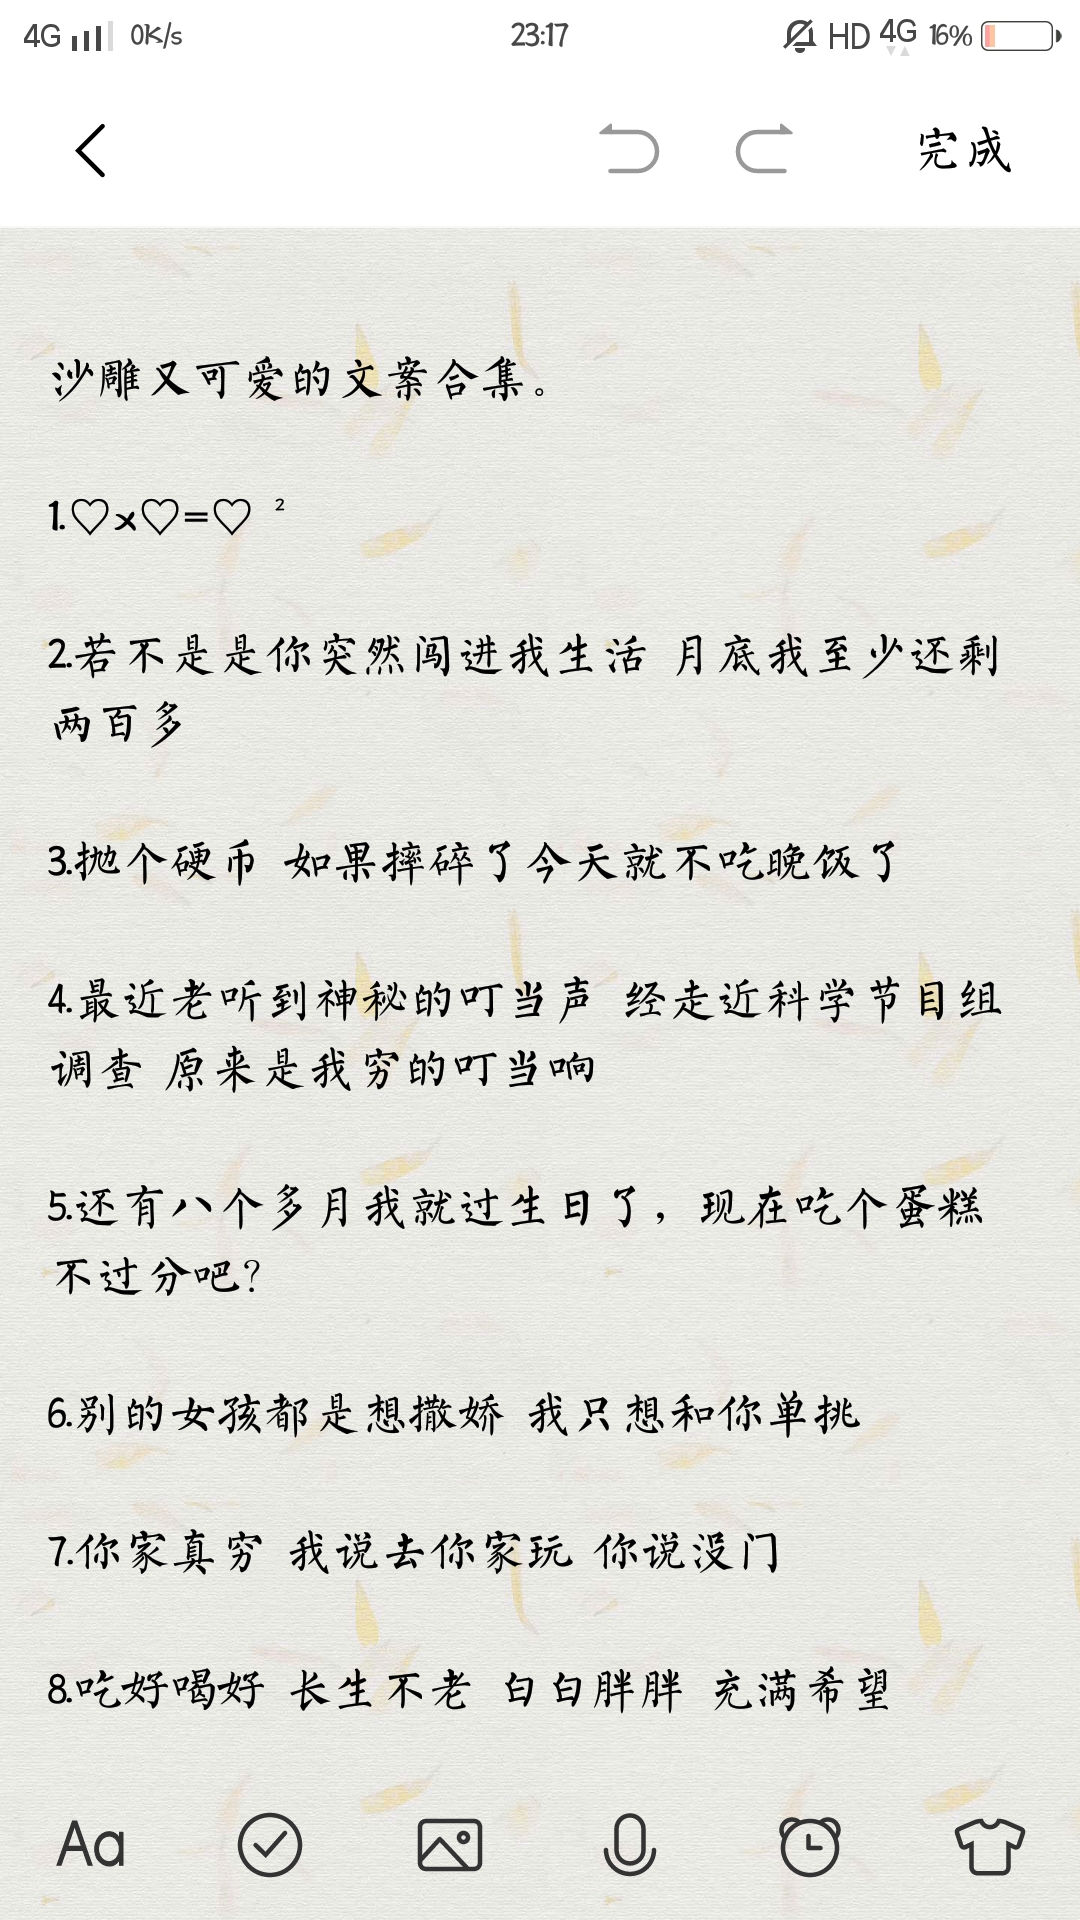 4G 0K/s 23:17 HD 4G 16%
完成
沙雕又可爱的文案合集。
1.♡×♡=♡ ²
2.若不是是你突然闯进我生活 月底我至少还剩
两百多
3.抛个硬币 如果摔碎了今天就不吃晚饭了
4.最近老听到神秘的叮当声 经走近科学节目组
调查 原来是我穷的叮当响
5.还有八个多月我就过生日了，现在吃个蛋糕
不过分吧？
6.别的女孩都是想撒娇 我只想和你单挑
7.你家真穷 我说去你家玩 你说没门
8.吃好喝好 长生不老 白白胖胖 充满希望
Aa